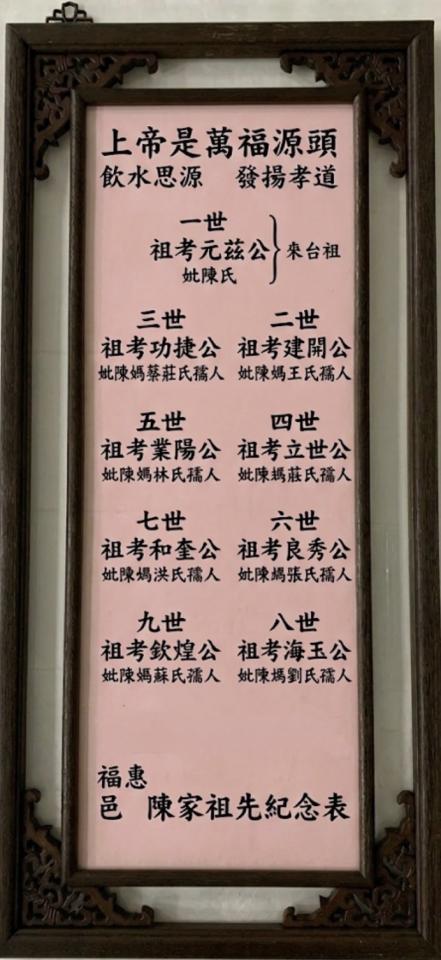 上帝是萬福源頭
飲水思源　發揚孝道
一世
祖考元茲公
妣陳氏
來台祖
二世
祖考建開公
妣陳媽王氏孺人
三世
祖考功捷公
妣陳媽蔡莊氏孺人
四世
祖考立世公
妣陳媽莊氏孺人
五世
祖考業陽公
妣陳媽林氏孺人
六世
祖考良秀公
妣陳媽張氏孺人
七世
祖考和奎公
妣陳媽洪氏孺人
八世
祖考海玉公
妣陳媽劉氏孺人
九世
祖考欽煌公
妣陳媽蘇氏孺人
福惠
邑　陳家祖先紀念表